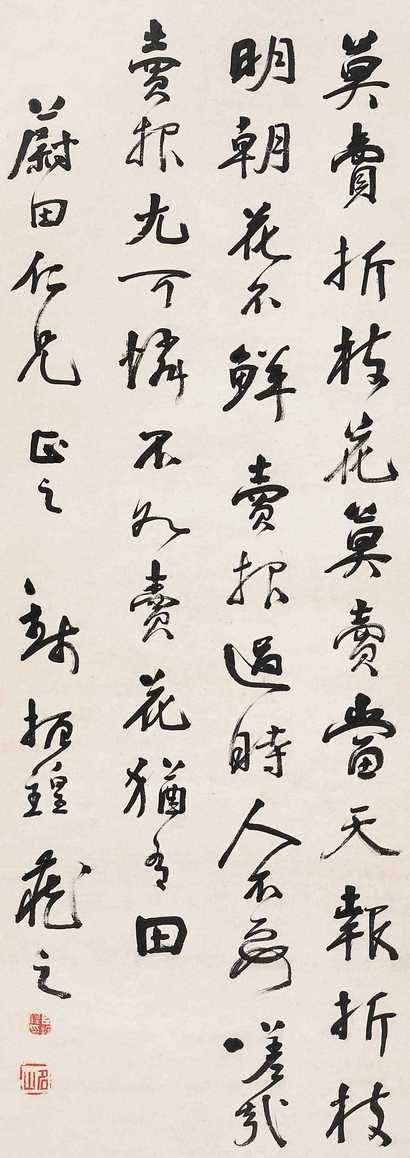 莫賣折枝花莫賣當天報折枝
明朝花不鮮賣報過時人不要嗟哉
賣報尤可憐不如賣花猶有田
蔚田仁兄正之 錢振鍠 之
名山